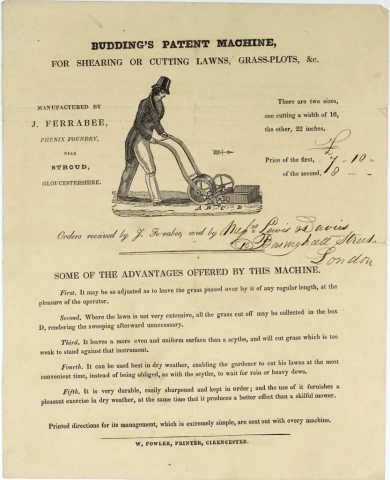 BUDDING'S PATENT MACHINE,
FOR SHEARING OR CUTTING LAWNS, GRASS-PLOTS, &c.
MANUFACTURED BY
J. FERRABEE,
PHENIX FOUNDRY,
NEAR
STROUD,
GLOUCESTERSHIRE.
There are two sizes,
one cutting a width of 16,
the other, 22 inches.
£
Price of the first, 7 - 10 -
of the second, 8 - -
A B C D
Orders received by J. Ferabee, and by Messrs Lewis & Davis
Basinghall Street
London
SOME OF THE ADVANTAGES OFFERED BY THIS MACHINE.
First. It may be so adjusted as to leave the grass passed over by it of any regular length, at the
pleasure of the operator.
Second. Where the lawn is not very extensive, all the grass cut off may be collected in the box
D, rendering the sweeping afterward unnecessary.
Third. It leaves a more even and uniform surface than a scythe, and will cut grass which is too
weak to stand against that instrument.
Fourth. It can be used best in dry weather, enabling the gardener to cut his lawns at the most
convenient time, instead of being obliged, as with the scythe, to wait for rain or heavy dews.
Fifth. It is very durable, easily sharpened and kept in order; and the use of it furnishes a
pleasant exercise in dry weather, at the same time that it produces a better effect than a skilful mower.
Printed directions for its management, which is extremely simple, are sent out with every machine.
W. FOWLER, PRINTER, CIRENCESTER.